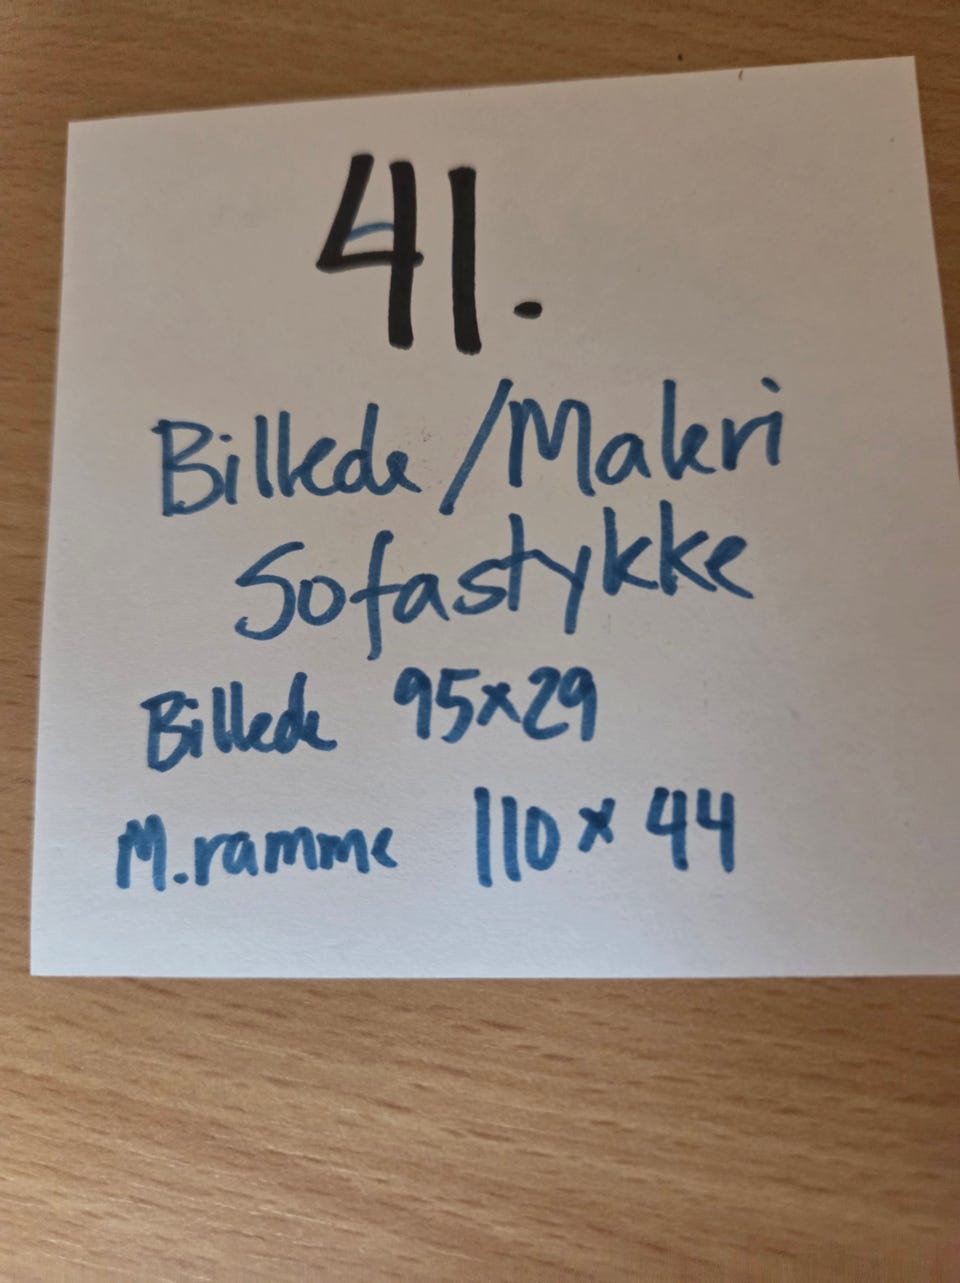 41.
Billede/Maleri
Sofastykke
Billede 95x29
M.ramme 110x44